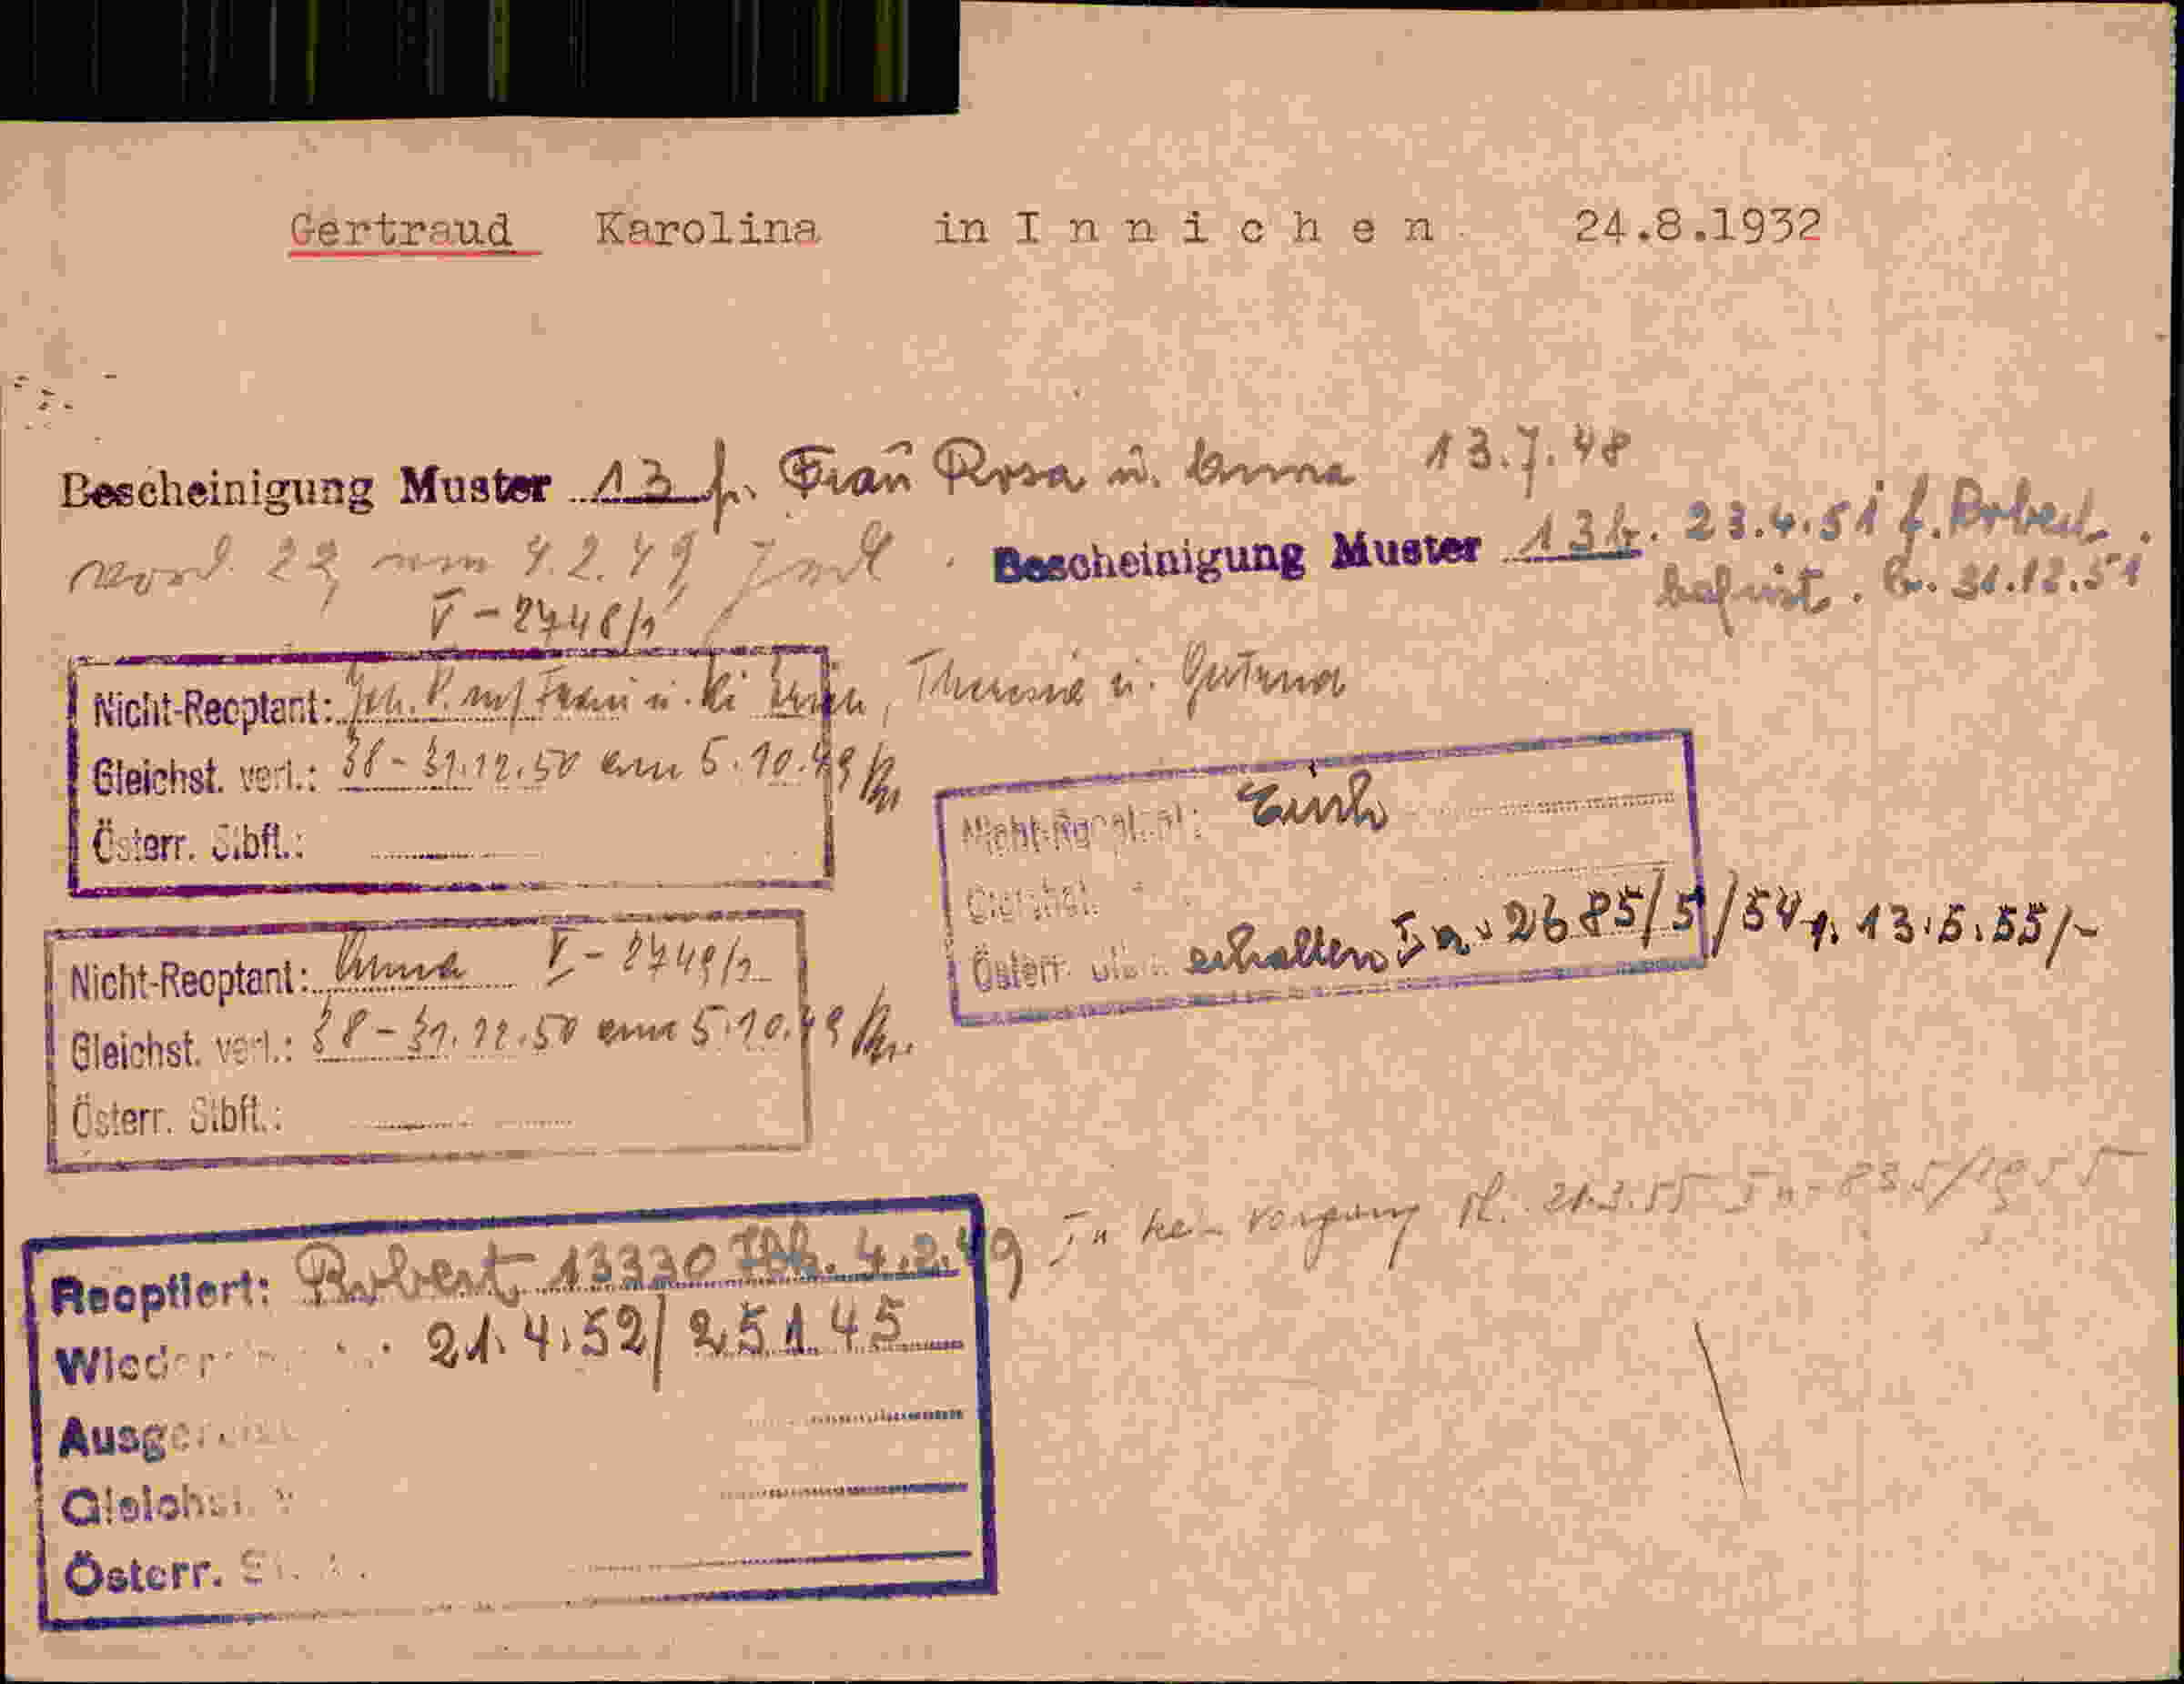 Gertraud Karolina in I n n i c h e n 24.8.1932
Bescheinigung Muster 13 f. Frau Rosa u. Anna 13.7.48
4.2.49
Bescheinigung Muster 13 b. 23.4.51 f. Robert
befrist. b. 31.12.51
V - 2748/1
Nicht-Reoptant: Joh. P. Frau u. Ki Erich, Theresia u. Gertraud
Gleichst. verl.: 38 - 31.12.50 am 5.10.49
Österr. Stbft.:
Nicht-Reoptant: Erich
Gleichst.
Österr. erhalten In. 2685/5/54 v. 13.5.55/-
Nicht-Reoptant: Anna V - 2749/1
Gleichst. verl.: 38 - 31.12.50 am 5.10.49
Österr. Stbft.:
In kein Vorgang 21.3.55 In - 835/1955
Reoptiert: Robert 13330 4.2.49
21.4.52/25145
Österr.